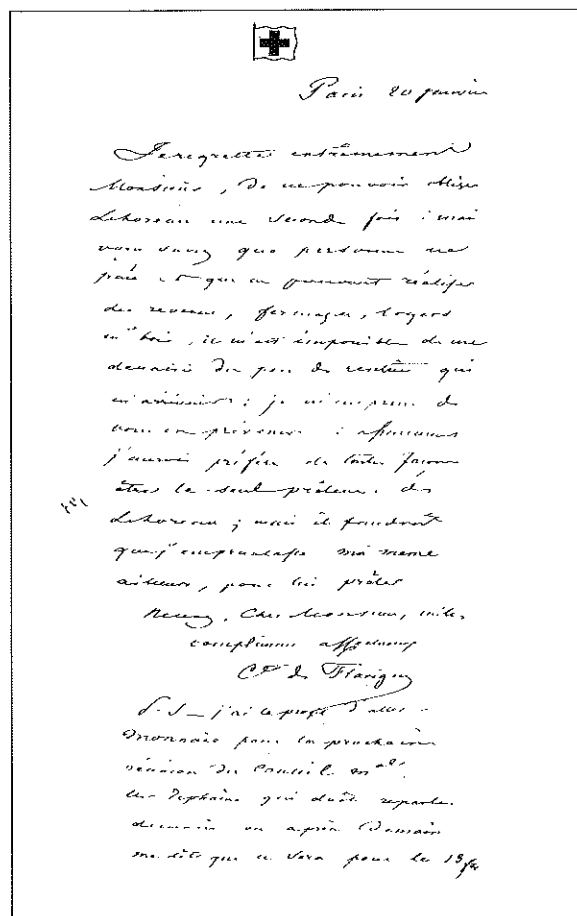 Paris 20 janvier
Je regrette extrêmement
Monsieur, de ne pouvoir obliger
Lehoreau une seconde fois : mais
vous savez que personne ne
paie et que ne pouvant réaliser
des revenus, fermages, loyers
ni bois, il m'est impossible de me
démunir du peu de rentrée qui
m'arrivent : je m'empresse de
vous en prévenir :
j'aurois préféré de toute façon
être le seul prêteur des
Lehoreau ; mais il faudroit
que j'empruntasse moi même
ailleurs, pour lui prêter
Recevez, Cher Monsieur, mille
complimens affectueux
Cte de Flavigny
P.S _ j'ai le projet d'aller
Monnaie pour la prochaine
réunion du Conseil mal.
qui doit repartir
demain ou après demain
me dit que ce sera pour le 15